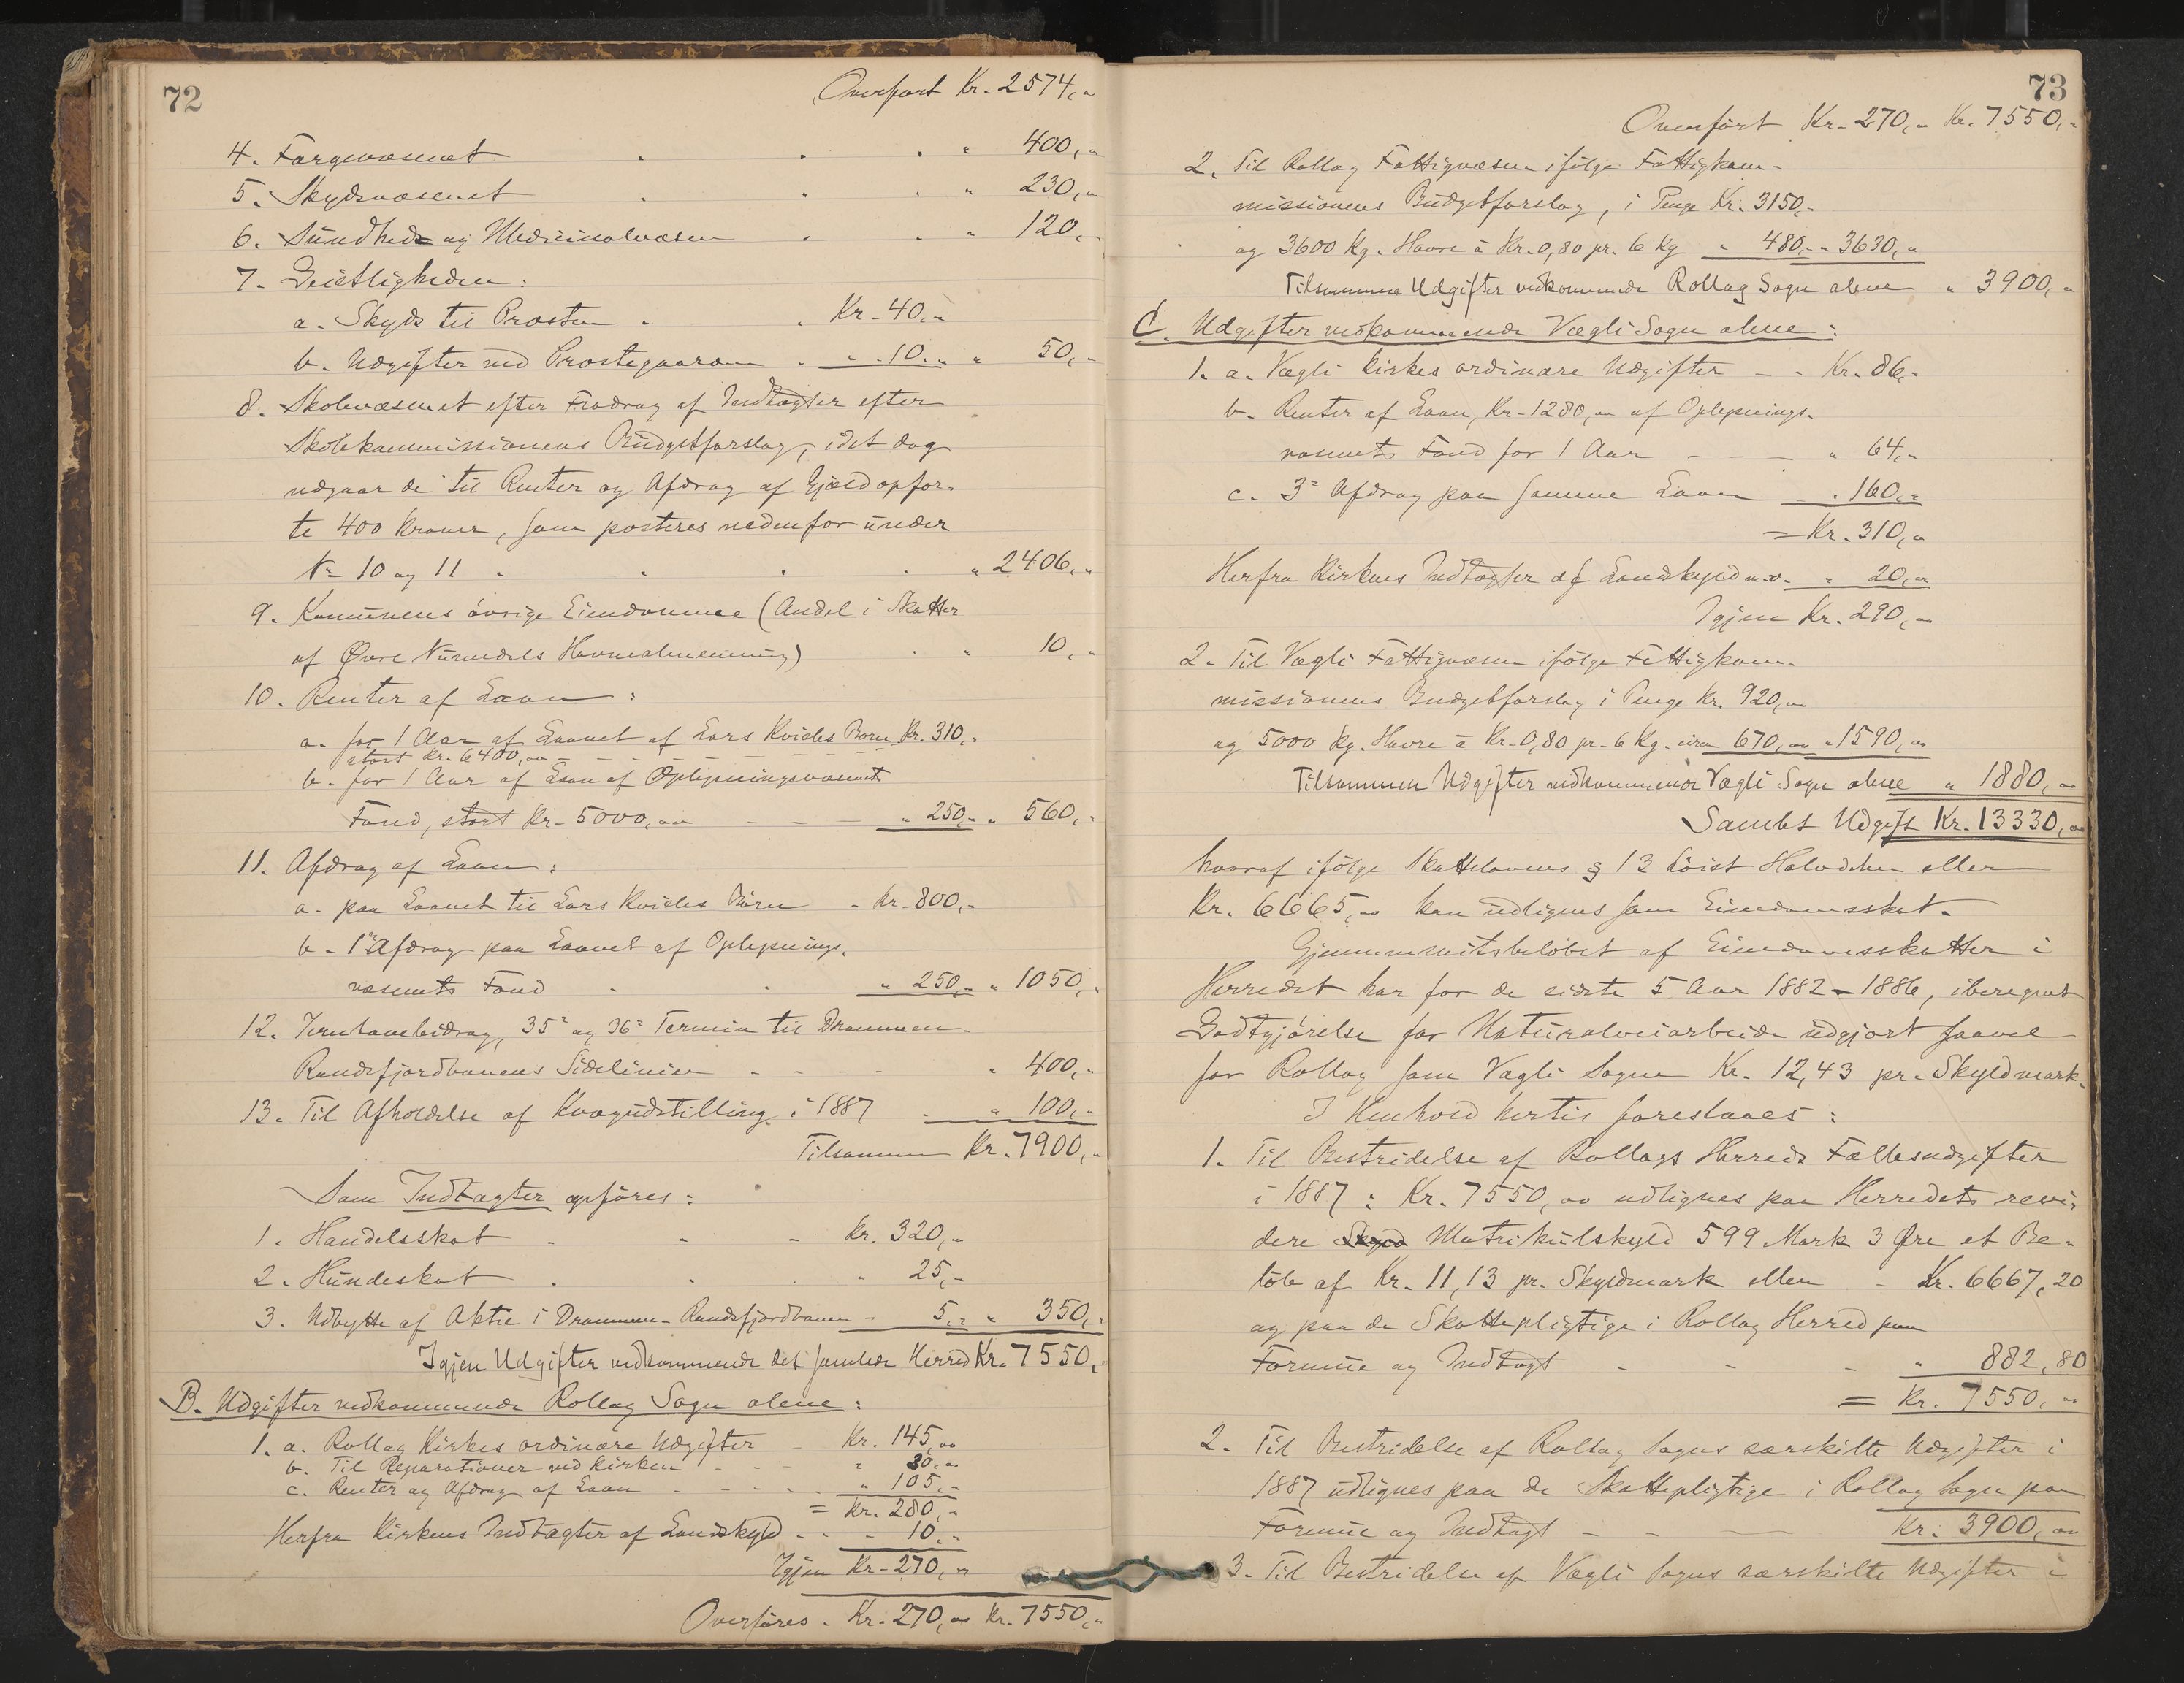 72
Overført Kr. 2574,"
4. Fargevæsenet . . . " 400,"
5. Skydsvæsenet . . . " 230,"
6. Sundheds og Medicinalvæsen . . " 120,"
7. Geistligheden:
a. Skyds til Prosten . . Kr. 40,"
b. Udgifter ved Prostegaarden . " 10," " 50,"
8. Skolevæsenet efter Fradrag af Indtægter efter
Skolekommissionens Budgetforslag, idet dog
udgaar de til Renter og Afdrag af Gjæld opfør-
te 400 Kroner, som posteres nedenfor under
No 10 og 11 . . . . " 2406,"
9. Kommunens øvrige Eiendomme (Andel i Skatter
af Øvre Numedals Havnealmenning) . " 10,"
10. Renter af Laan:
a. for 1 Aar af Laanet af Lars Kvisles Børn Kr. 310,"
stort Kr. 6400,00
b. for 1 Aar af Laan af Oplysningsvæsenets
Fond, stort Kr. 5000,00 - - - " 250," " 560,"
11. Afdrag af Laan:
a. paa Laanet til Lars Kvisles Børn - Kr. 800,"
b. 1ste Afdrag paa Laanet af Oplysnings-
væsenets Fond . . " 250," " 1050,"
12. Jernbanebidrag, 35te og 36te Termin til Drammen-
Randsfjordbanens Sidelinier - - - - " 400,"
13. Til Afholdelse af Kvægudstilling i 1887 . " 100,"
Tilsammen Kr. 7900,"
Som Indtægter opføres:
1. Handelsskat - - - Kr. 320,"
2. Hundeskat . . . " 25,"
3. Udbytte af Aktie i Drammen-Randsfjordbanen - 5," " 350,"
Igjen Udgifter vedkommende det samlede Herred Kr. 7550,
B. Udgifter vedkommende Rollag Sogn alene:
1. a. Rollag Kirkes ordinære Udgifter - Kr. 145,00
b. Til Reparationer ved Kirken - - - " 30,00
c. Renter og Afdrag af Laan - - - - " 105,"
= Kr. 280,"
Herfra Kirkens Indtægter af Landskyld - - - 10,"
Igjen Kr. 270,"
Overføres. Kr. 270,00 Kr. 7550,"
73
Overført Kr. 270," Kr. 7550,"
2. Til Rollag Fattigvæsen ifølge Fattigkom-
missionens Budgetforslag, i Penge Kr. 3150,"
og 3600 Kg. Havre à Kr. 0,80 pr. 6 Kg " 480," " 3630,"
Tilsammen Udgifter vedkommende Rollag Sogn alene " 3900,"
C. Udgifter vedkommende Vægli Sogn alene:
1. a. Vægli Kirkes ordinære Udgifter - - Kr. 86,"
b. Renter af Laan, Kr. 1280,00 af Oplysnings-
væsenets Fond for 1 Aar - - - " 64,"
c. 3die Afdrag paa samme Laan - " 160,"
= Kr. 310,"
Herfra Kirkens Indtægter af Landskyld m.v. " 20,"
Igjen Kr. 290,"
2. Til Vægli Fattigvæsen ifølge Fattigkom-
missionens Budgetforslag i Penge Kr. 920,00
og 5000 Kg. Havre à Kr. 0,80 pr. 6 Kg. circa 670,00 " 1590,00
Tilsammen Udgifter vedkommende Vægli Sogn alene " 1880,00
Samlet Udgift Kr. 13330,00
hvoraf ifølge Skattelovens § 13 høist Halvdelen eller
Kr. 6665,00 kan udlignes som Eiendomsskat.
Gjennemsnitsbeløbet af Eiendomsskatter i
Herredet har for de sidste 5 Aar 1882-1886, iberegnet
Godtgjørelse for Naturalveiarbeide udgjort saavel
for Rollag som Vægli Sogne Kr. 12,43 pr. Skyldmark.
I Henhold hertil foreslaaes:
1. Til Bestridelse af Rollags Herreds Fællesudgifter
i 1887: Kr. 7550,00 udlignes paa Herredets revi-
dere Skyld Matrikulskyld 599 Mark 3 Øre et Be-
løb af Kr. 11,13 pr. Skyldmark eller - Kr. 6667,20
og paa de Skattepligtige i Rollag Herred paa
Formue og Indtægt - - - " 882,80
= Kr. 7550,"
2. Til Bestridelse af Rollag Sogns særskilte Udgifter i
1887 udlignes paa de Skattepligtige i Rollag Sogn paa
Formue og Indtægt - - - Kr. 3900,00
3. Til Bestridelse af Vægli Sogns særskilte Udgifter i